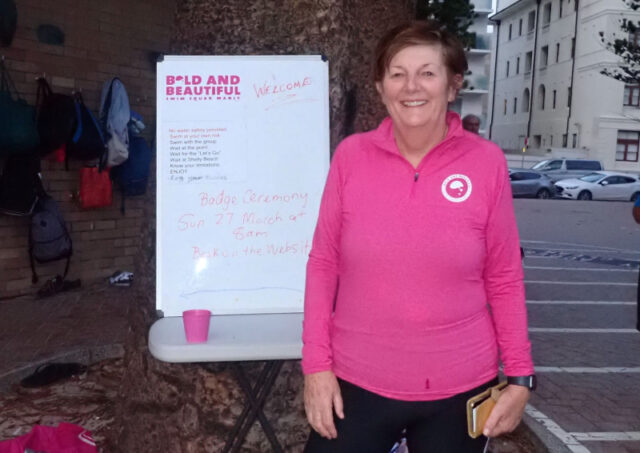 BOLD AND
BEAUTIFUL
SWIM SQUAD MANLY
WELCOME!
No water safety provided.
Swim at your own risk.
Swim with the group
Wait at the point
Wait for the "Let's Go".
Wait at Shelly Beach
Know your limitations.
ENJOY
Badge Ceremony
Sun 27 March at
8am
Book on the Website